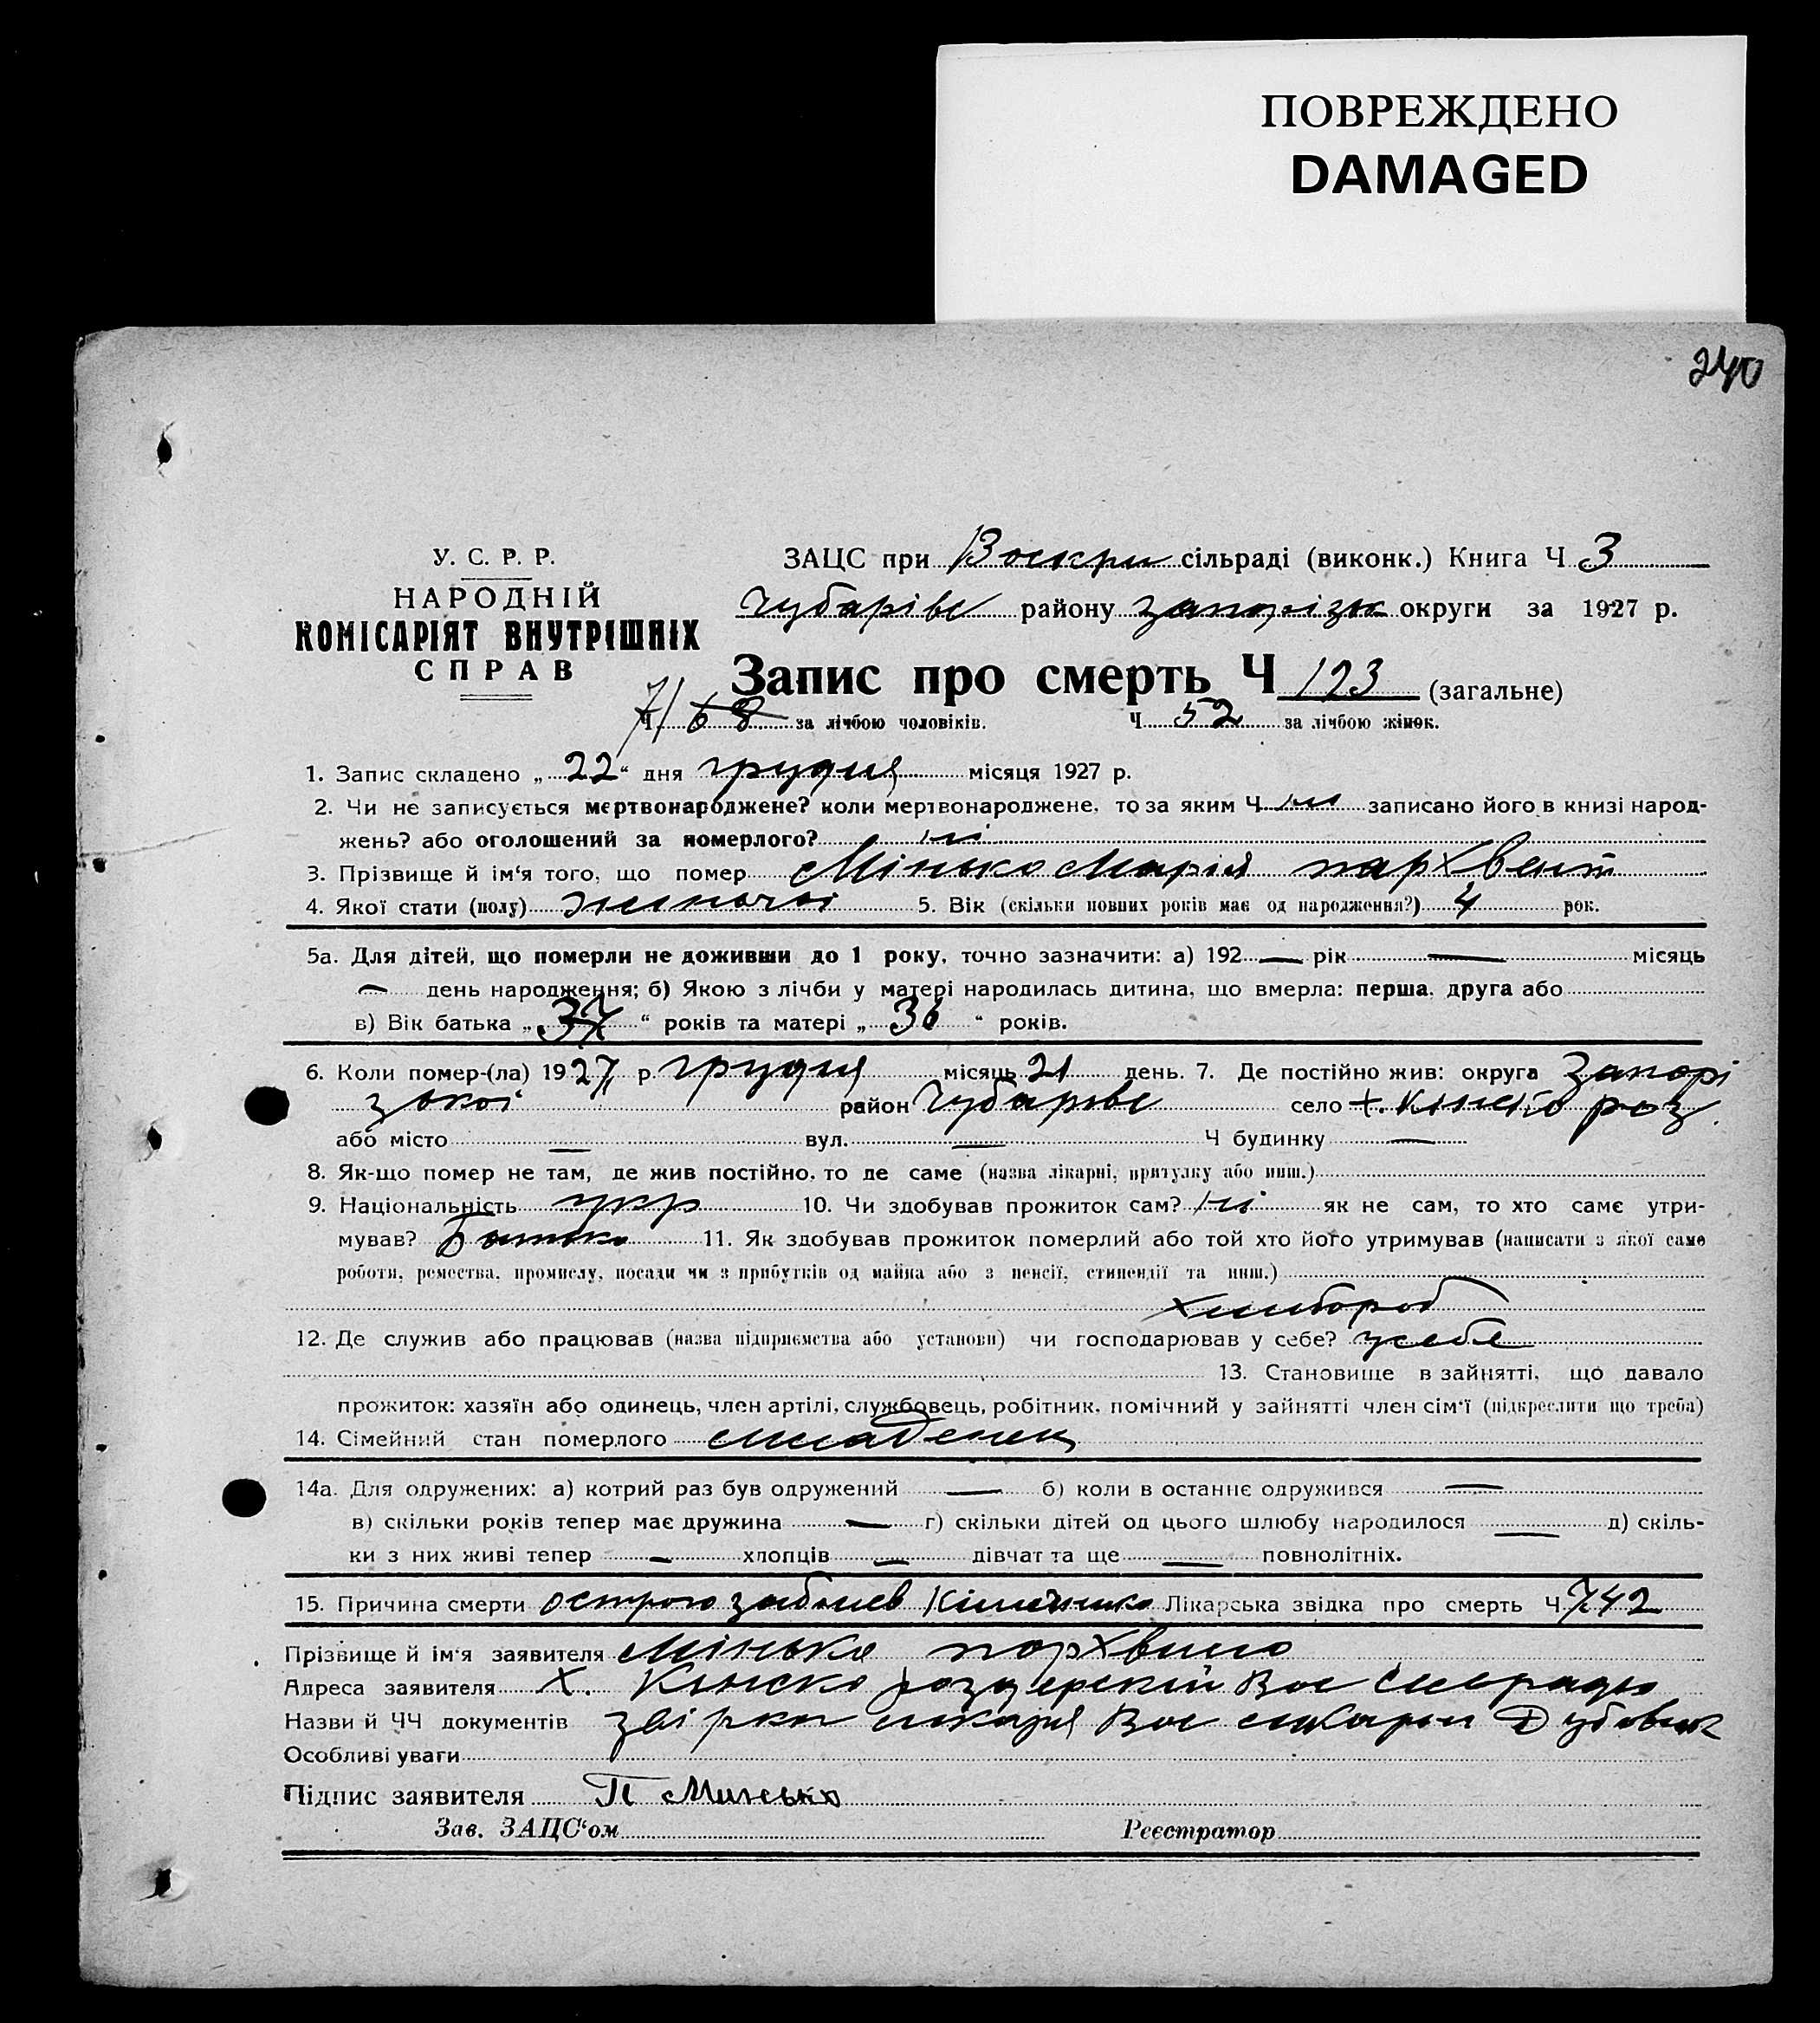 ПОВРЕЖДЕНО
DAMAGED
240
У. С. Р. Р.
НАРОДНІЙ
КОМІСАРІЯТ ВНУТРІШНІХ
СПРАВ
ЗАЦС при Воскри сільраді (виконк.) Книга Ч 3
Чубарівс району запорізьк округи за 1927 р.
Запис про смерть Ч 123 (загальне)
71 Ч 68 за лічбою чоловіків. Ч 52 за лічбою жінок.
1. Запис складено „22“ дня грудня місяця 1927 р.
2. Чи не записується мертвонароджене? коли мертвонароджене, то за яким Ч ні записано його в книзі народ-
жень? або оголошений за померлого? ні
3. Прізвище й ім'я того, що помер Мінько Марія пархвент
4. Якої стати (полу) жиночоі 5. Вік (скільки повних років має од народження?) 4 рок.
5а. Для дітей, що померли не доживши до 1 року, точно зазначити: а) 192 — рік — місяць
— день народження; б) Якою з лічби у матері народилась дитина, що вмерла: перша, друга або
в) Вік батька „37“ років та матері „36“ років.
6. Коли помер-(ла) 1927 р. грудня місяць 21 день. 7. Де постійно жив: округа Запорі
зькоі район Чубарівс село х. Кінсько роз.
або місто — вул. — Ч будинку —
8. Як-що помер не там, де жив постійно, то де саме (назва лікарні, притулку або инш.)
9. Національність укр 10. Чи здобував прожиток сам? ні як не сам, то хто саме утри-
мував? Батько 11. Як здобував прожиток померлий або той хто його утримував (написати з якої саме
роботи, ремества, промислу, посади чи з прибутків од майна або з пенсії, стипендії та инш.)
хлибороб
12. Де служив або працював (назва підприємства або установи) чи господарював у себе? у себе
13. Становище в зайнятті, що давало
прожиток: хазяїн або одинець, член артілі, службовець, робітник, помічний у зайнятті член сім'ї (підкреслити що треба)
14. Сімейний стан померлого младенец
14а. Для одружених: а) котрий раз був одружений — б) коли в останнє одружився —
в) скільки років тепер має дружина — г) скільки дітей од цього шлюбу народилося — д) скіль-
ки з них живі тепер — хлопців — дівчат та ще — повнолітніх.
15. Причина смерти острого Лікарська звідка про смерть Ч 742
Прізвище й ім'я заявителя Мінько
Адреса заявителя х. Кинско Вос
Назви й ЧЧ документів Вос
Особливі уваги
Підпис заявителя П Минько
Зав. ЗАЦС‘ом Реєстратор